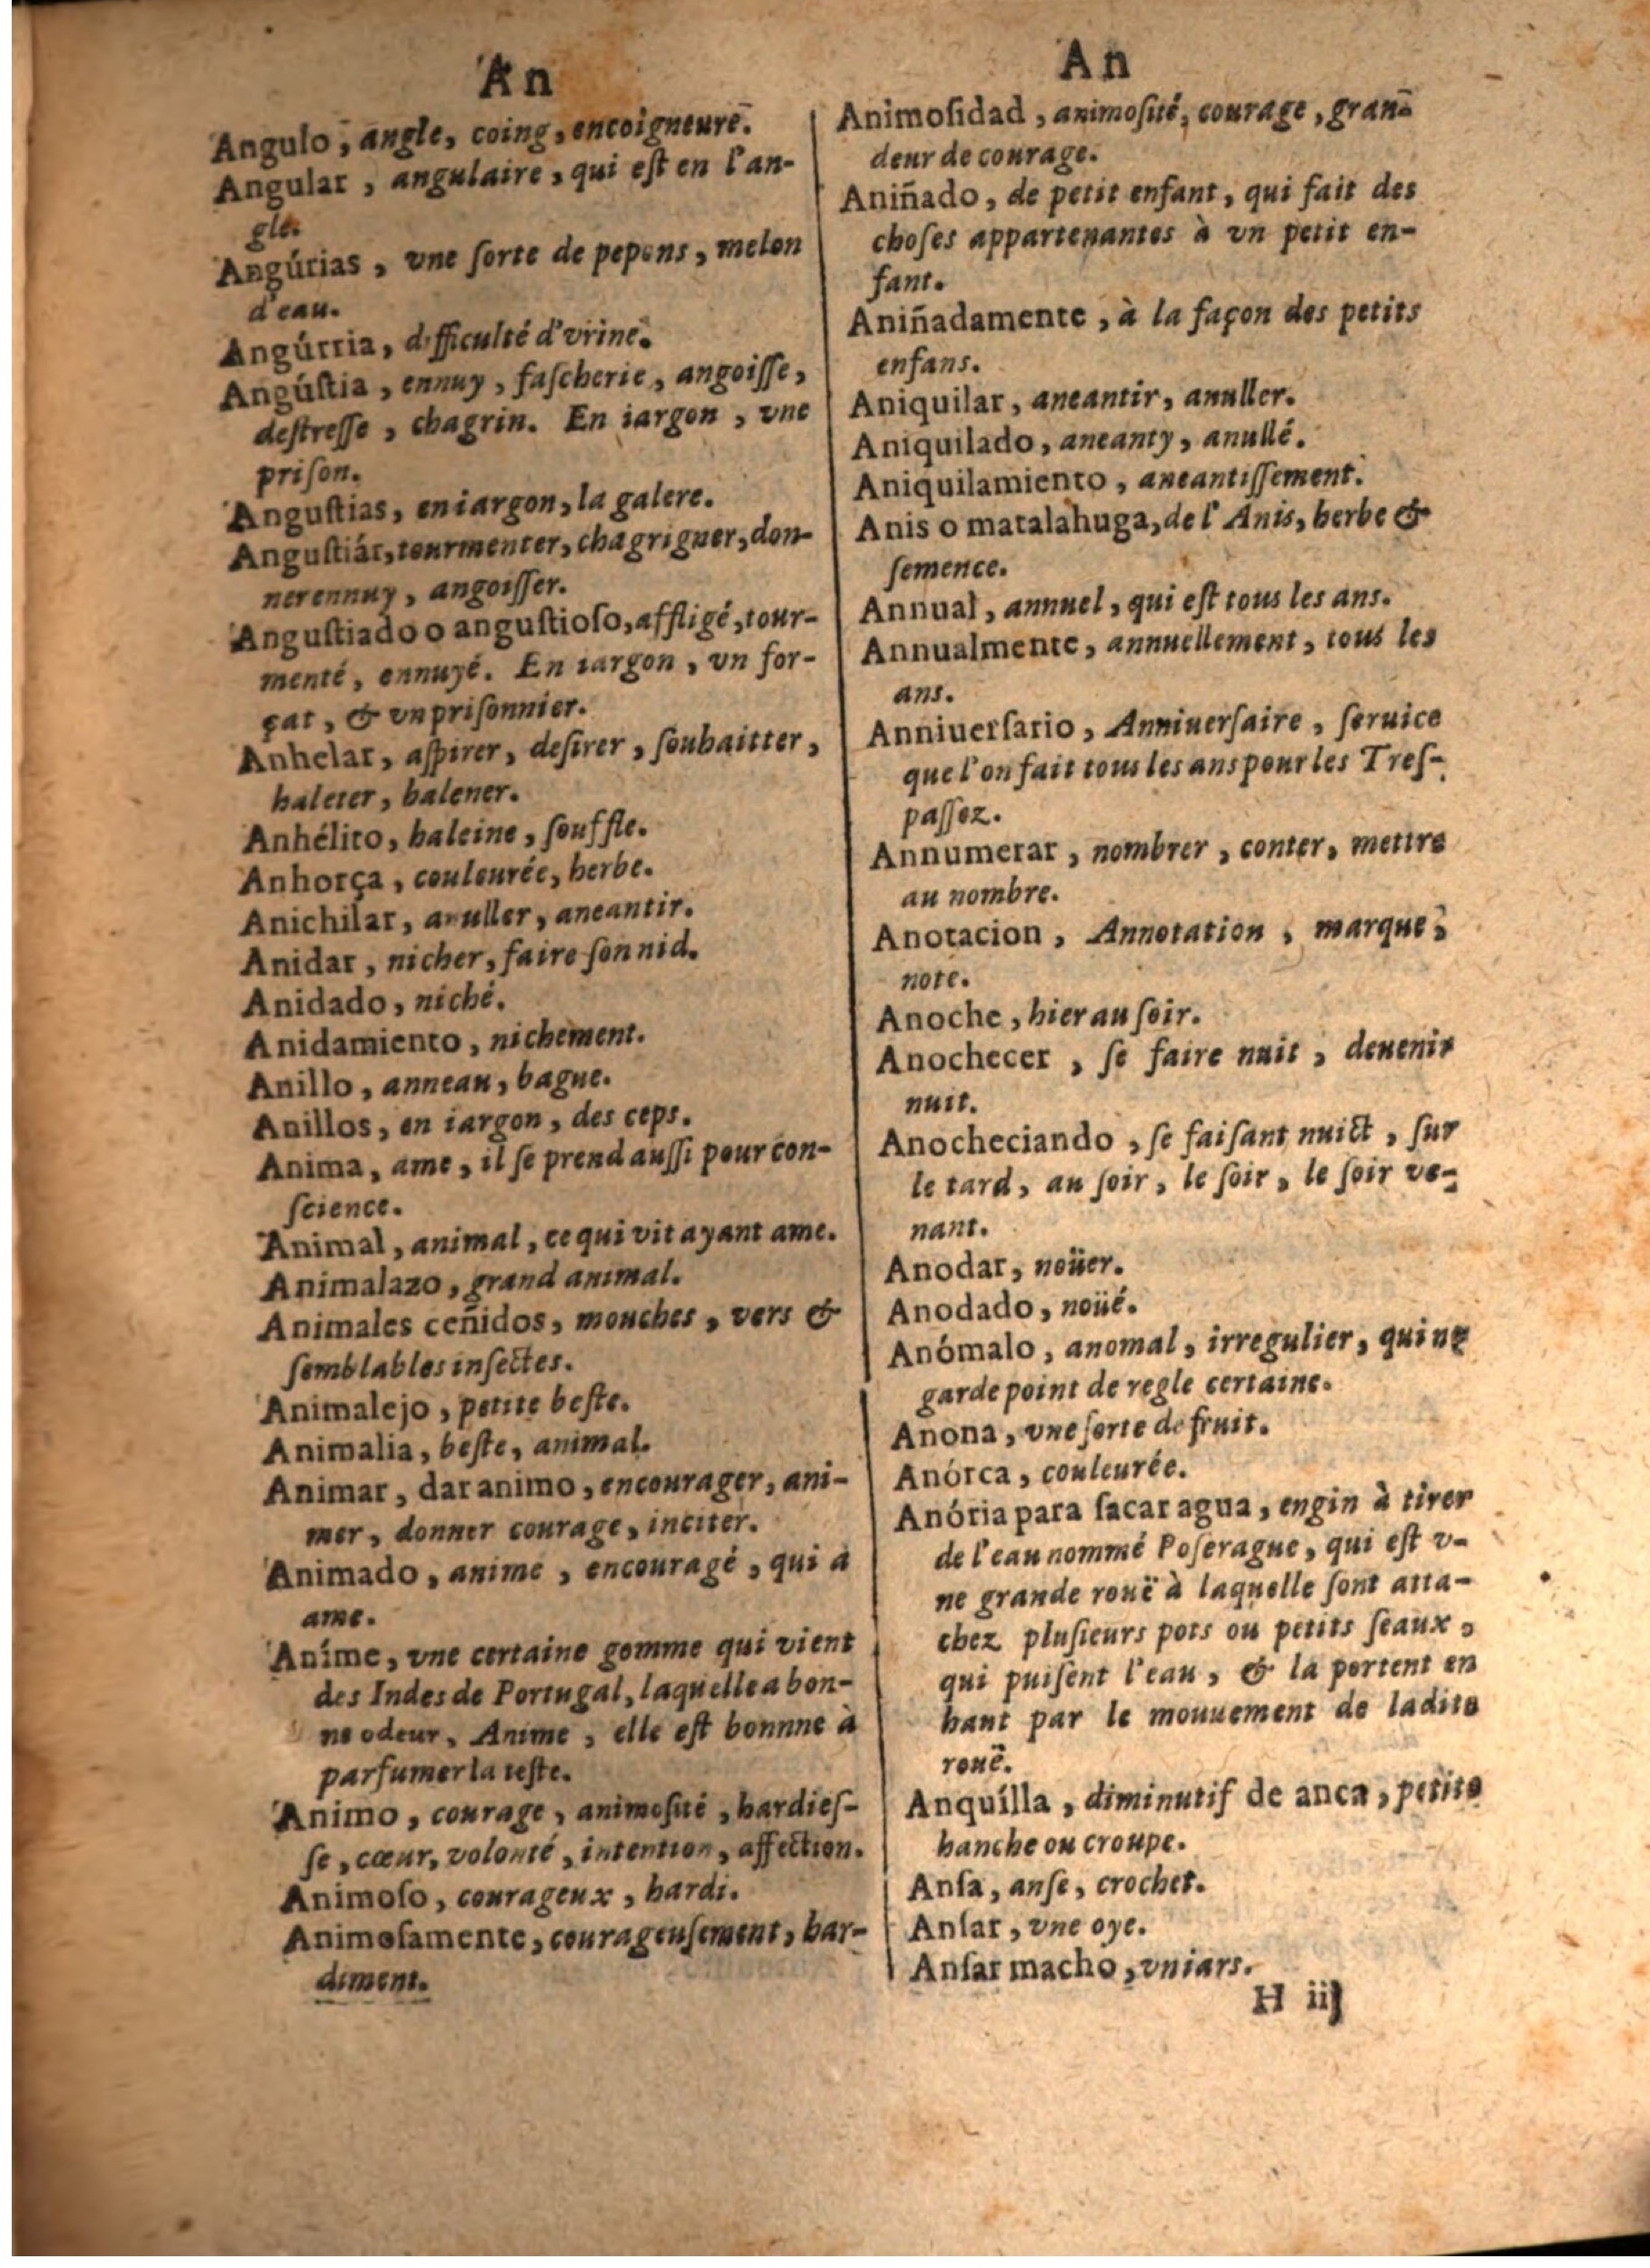 An
Angulo, angle, coing, encoigneure.
Angular, angulaire, qui eſt en l'an-
gle.
Angúrias, vne ſorte de pepons, melon
d'eau.
Angúrria, difficulté d'vrine.
Angúſtia, ennuy, faſcherie, angoiſſe,
deſtreſſe, chagrin. En iargon, vne
priſon.
Anguſtias, en iargon, la galere.
Anguſtiár, tourmenter, chagrigner, don-
ner ennuy, angoiſſer.
Anguſtiado o anguſtioſo, affligé, tour-
menté, ennuyé. En iargon, vn for-
çat, & vn priſonnier.
Anhelar, aſpirer, deſirer, ſouhaitter,
haleter, halener.
Anhélito, haleine, ſouffle.
Anhorça, couleurée, herbe.
Anichilar, anuller, aneantir.
Anidar, nicher, faire ſon nid.
Anidado, niché.
Anidamiento, nichement.
Anillo, anneau, bague.
Anillos, en iargon, des ceps.
Anima, ame, il ſe prend auſſi pour con-
ſcience.
Animal, animal, ce qui vit ayant ame.
Animalazo, grand animal.
Animales ceñidos, mouches, vers &
ſemblables inſectes.
Animalejo, petite beſte.
Animalia, beſte, animal.
Animar, dar animo, encourager, ani-
mer, donner courage, inciter.
Animado, animé, encouragé, qui a
ame.
Aníme, vne certaine gomme qui vient
des Indes de Portugal, laquelle a bon-
ne odeur, Anime, elle eſt bonnne à
parfumer la teſte.
Animo, courage, animoſité, hardieſ-
ſe, cœur, volonté, intention, affection.
Animoſo, courageux, hardi.
Animoſamente, courageuſement, har-
diment.
An
Animoſidad, animoſité, courage, gran-
deur de courage.
Aniñado, de petit enfant, qui fait des
choſes appartenantes à vn petit en-
fant.
Aniñadamente, à la façon des petits
enfans.
Aniquilar, aneantir, anuller.
Aniquilado, aneanty, anullé.
Aniquilamiento, aneantiſſement.
Anis o matalahuga, de l'Anis, herbe &
ſemence.
Annual, annuel, qui eſt tous les ans.
Annualmente, annuellement, tous les
ans.
Anniuerſario, Anniuerſaire, ſeruice
que l'on fait tous les ans pour les Treſ-
paſſez.
Annumerar, nombrer, conter, mettre
au nombre.
Anotacion, Annotation, marque,
note.
Anoche, hier au ſoir.
Anochecer, ſe faire nuit, deuenir
nuit.
Anocheciando, ſe faiſant nuict, ſur
le tard, au ſoir, le ſoir, le ſoir ve-
nant.
Anodar, noüer.
Anodado, noüé.
Anómalo, anomal, irregulier, qui ne
garde point de regle certaine.
Anona, vne ſorte de fruit.
Anórca, couleurée.
Anória para ſacar agua, engin à tirer
de l'eau nommé Poſerague, qui eſt v-
ne grande rouë à laquelle ſont atta-
chez pluſieurs pots ou petits ſeaux,
qui puiſent l'eau, & la portent en
haut par le mouuement de ladite
rouë.
Anquílla, diminutif de anca, petite
hanche ou croupe.
Anſa, anſe, crochet.
Anſar, vne oye.
Anſar macho, vn iars.
H iij